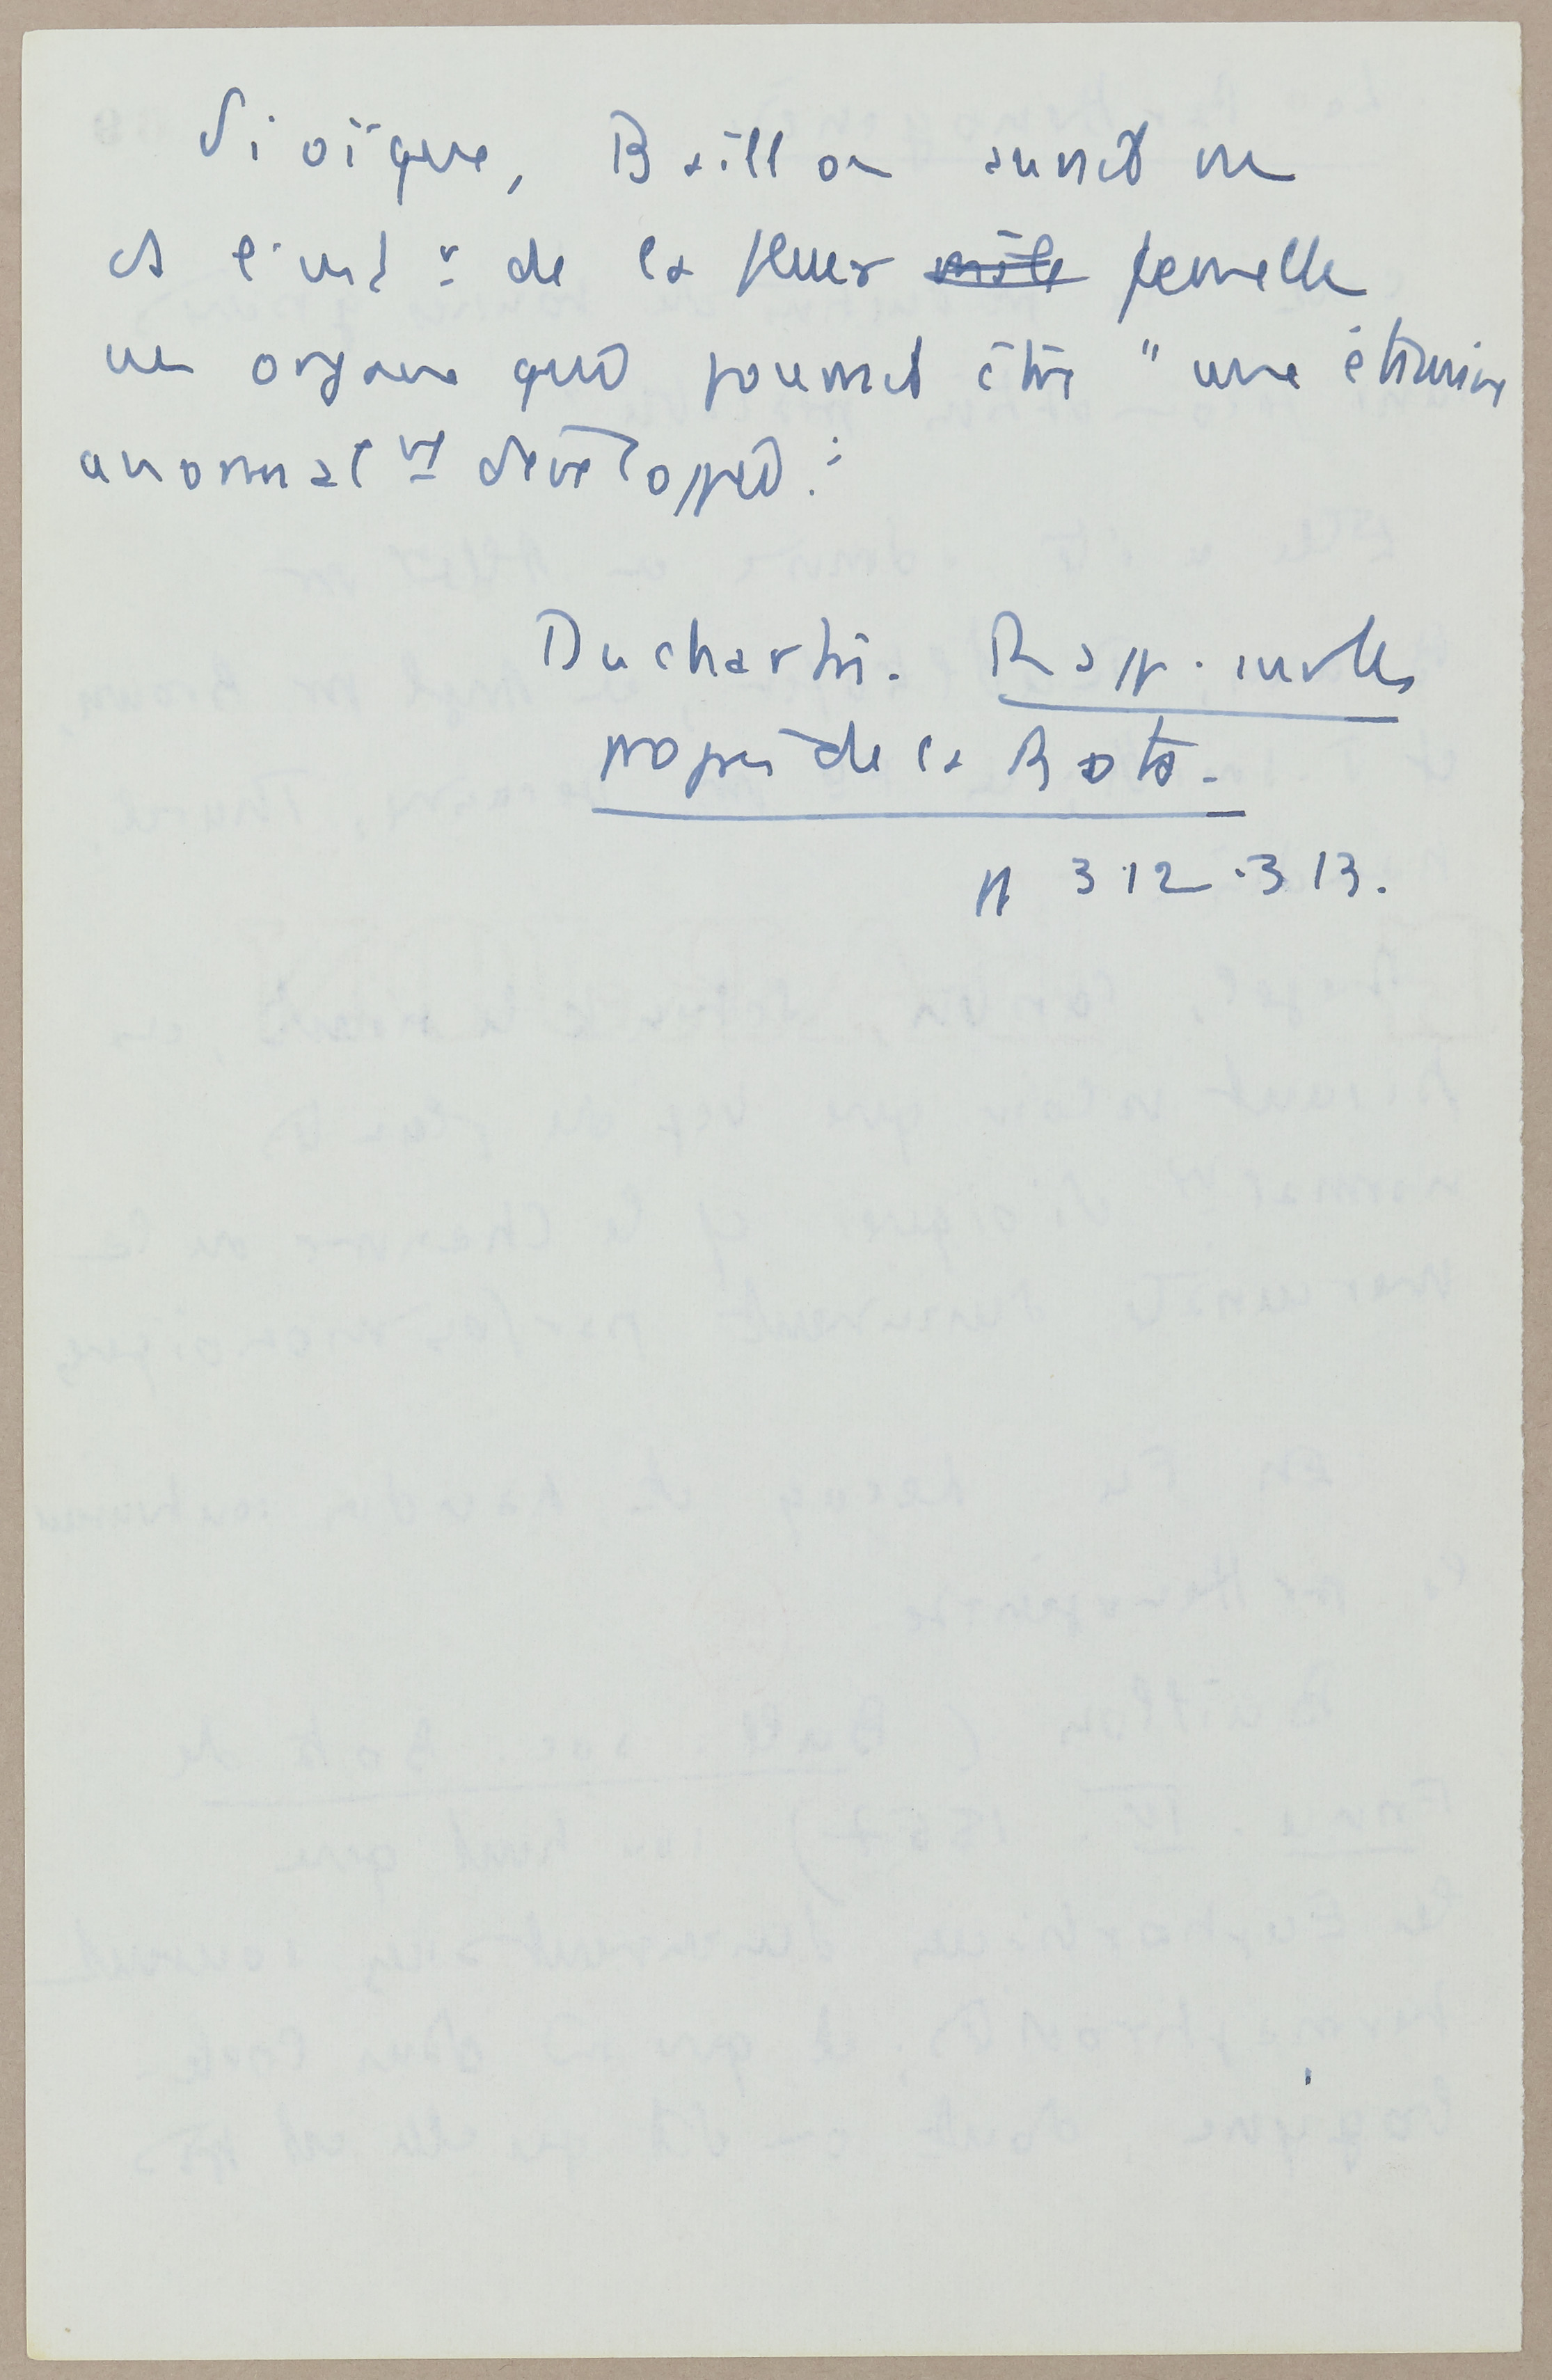 dioïque, Baillon aurait vu
et l'ind de la fleur mâle femelle
un organe qui pourrait être " une étamine
anormalᵗ développée :
Duchartre. Rapp. sur les
progrès de la Bota.
pp 312-313.